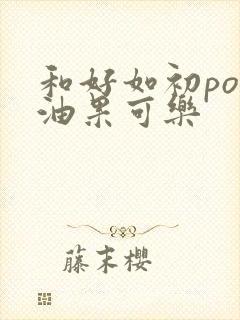 和好如初po
油果可樂
藤末櫻